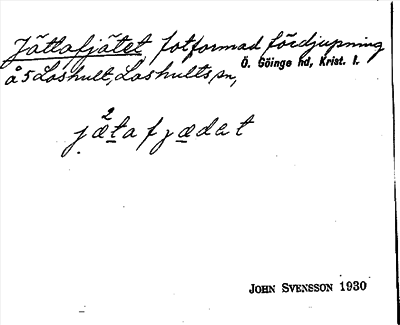 Jättafjätet, fotformad fördjupning
å 5 Loshult, Loshults sn, Ö. Göinge hd, Krist. l.
2
jætafjædat
JOHN SVENSSON 1930